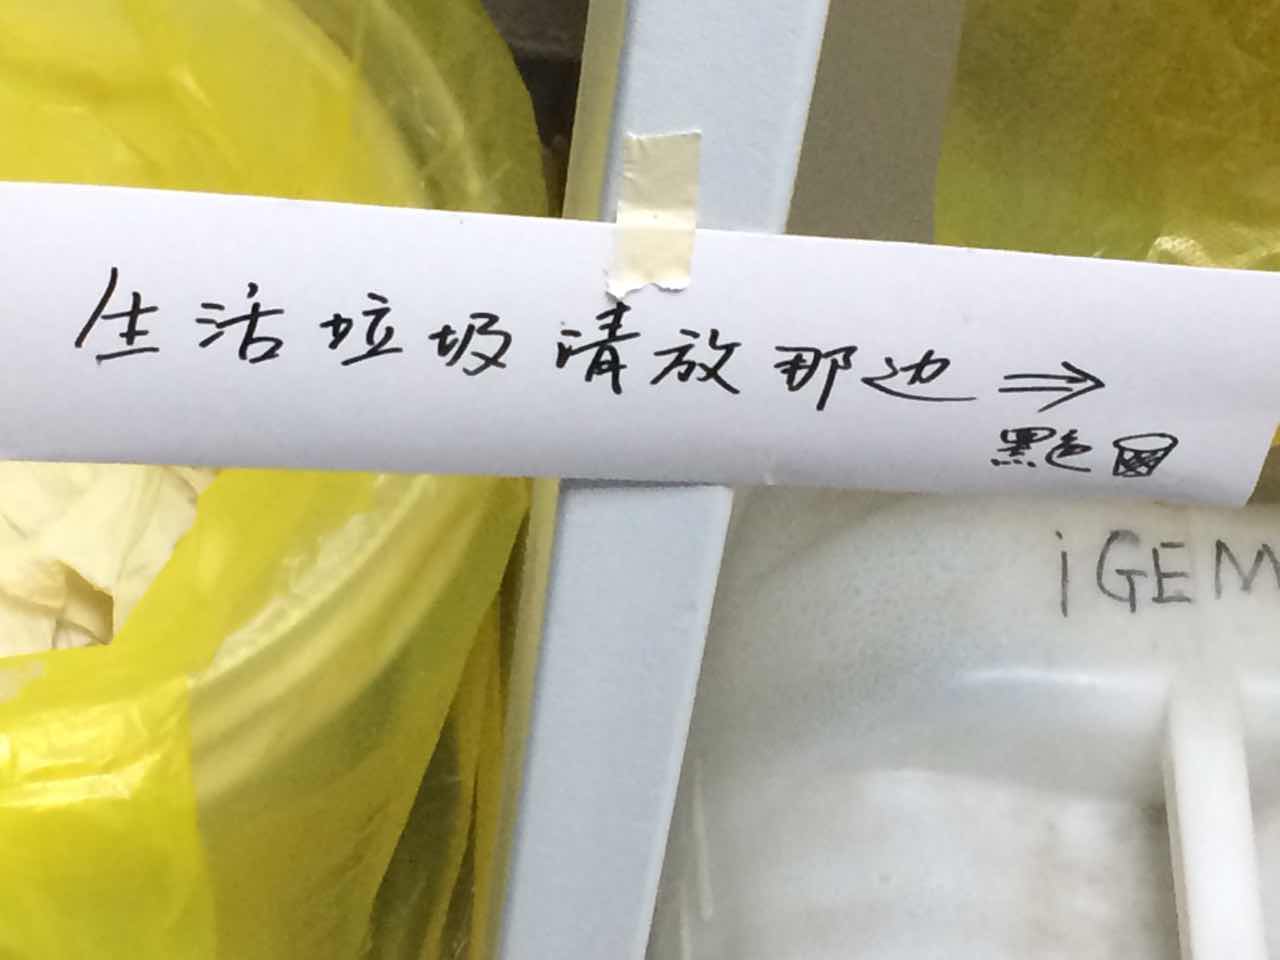 生活垃圾请放那边⇒
黑色
iGEM